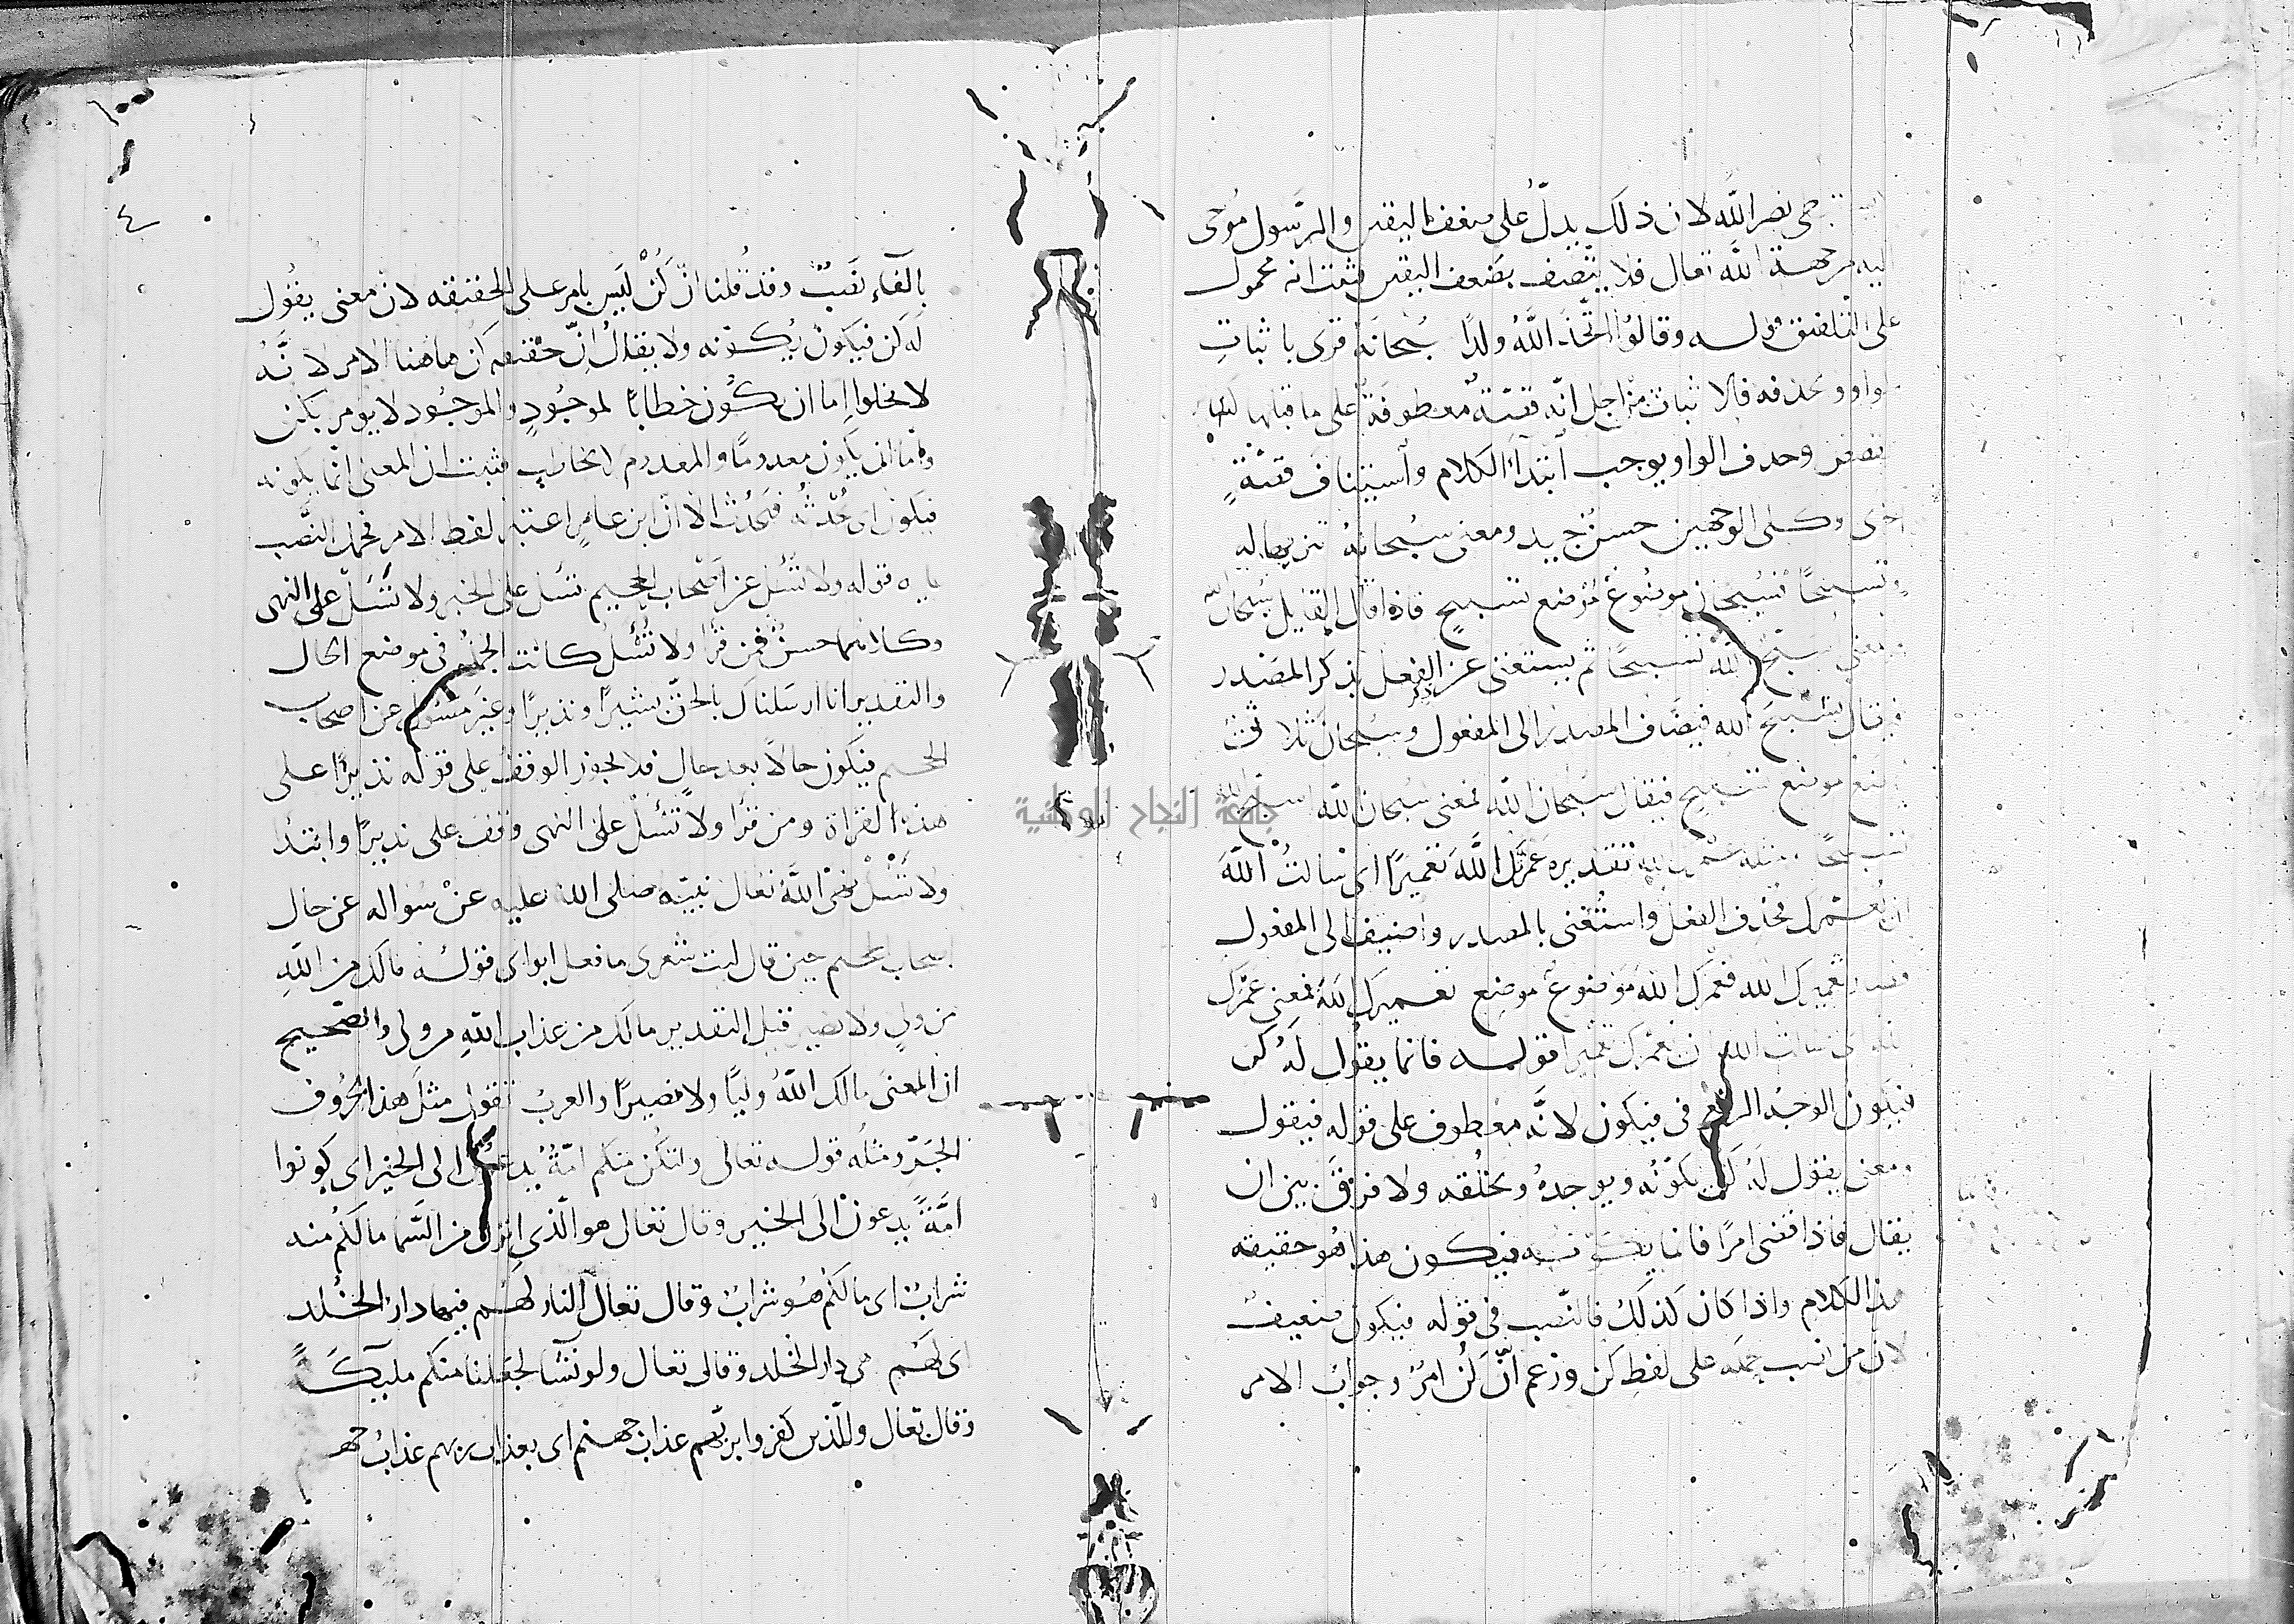 متى نصر الله لان ذلك يدلّ على ضعف اليقين والرّسول مُوحى
اليه من جهة الله تعالى فلا يتّصف بضعف اليقين فثبت انه محمول
على التلفيق قوله وقالوا اتّخذ اللهُ ولدًا سُبحانَهُ قرى باثباتِ
الواو وبحذفه فالاثباتُ من اجل انّه قصّةٌ معطوفةٌ على ما قبلها
وحذف الواو يوجب آبتدآءَ الكلام وأستيناف قصّةٍ
اخرى وكلى الوجهين حسنٌ جيد ومعنى سُبحانهُ تنزيهاً له
وتسبيحًا فسُبحان موضوعٌ موضع تسبيحٍ فاذا قال القايل سُبحان الله
فمعنى سبّح الله تسبيحًا ثم يستغنى عن الفعل بذكر المصدر
فيقال تسبيحَ الله فيضاف المصدر الى المفعول وسُبحانَ ثلاثىٌّ
وضع موضع تسبيح فيقال سُبحان الله بمعنى سُبحان الله اسبح الله
تسبيحًا ومثله عمرك الله تقديره عمّرتُك اللهَ تعميرًا اى سالتُ اللهَ
ان يُعمّرك فحُذِف الفعل واستُغنى بالمصدر واُضيف الى المفعول
تعميرك الله فعَمْرك اللهَ موضوعٌ موضع تعميرك اللهَ بمعنى عمّرتك
الله اى سالت الله ان يعمّرك تعميرا قوله فانما يقُول لَهُ كن
فيكون الوجهُ الرفع فى فيكون لانَّه معطوف على قوله فيقول
ومعنى يقول لَهُ كُن يكوّنُه ويوجدهُ ويخلُقه ولا فرقَ بين ان
يقال فاذا قضى امرًا فانما يكوّنه فيكون هذا هُو حقيقه
هذا الكلام واذا كان كذلكَ فالنّصب فى قوله فيكون ضعيفٌ
لان من نصب حمله على لفظ كن وزعم انّ كُن امرٌ وجوابُ الامر
بالفآءِ نَصبٌ وقد قُلنا انّ كُنْ ليَس بامر على الحقيقه لان معنى يقُول
لَه كن فيكون يُكوّنه ولا يقالُ انّ حقيقه كن هاهنا الامر لانَّهُ
لا يخلوا إما ان يكُون خطابًا لموجُودٍ والموجُود لا يومر بكن
وإما ان يكون معدومًا والمعدوم لا يخاطب فثبت ان المعنى انّما يكونه
فيكون اى يُحدّثُه فيَحدُث الّا انّ ابن عامرٍ اعتبر لفظ الامر فحمل النَّصب
عليه قوله ولا تُسئَل عن اَصْحاب الجحيم تُسئَل على الخبر ولا تَسْئَلْ على النهى
وكلاهما حسنٌ فمن قرا ولا تُسْئَلُ كانت الجملةُ فى موضع الحال
والتقدير انا ارسَلناك بالحقّ بشيرًا ونذيرًا وغيَر مسئولٍ عن اصحاب
الجحيم فيكون حالًا بعد حالٍ فلا يجوز الوقفُ على قوله نذيرًا على
هذه القراة ومن قرا ولا تَسْئَلْ على النهى وقفَ على نذيرًا وابتدا
ولا تَسْئَلْ نهى اللهُ تعالى نبيّه صلى الله عليه عنْ سُواله عن حال
اصحاب الجحيم حين قال ليت شعرى ما فعل ابواى قولُه مالك من اللهِ
من ولىٍ ولا نصير قيل التقدير مالك من عذاب الله من ولى والصّحيح
ان المعنى مالك اللهُ وليًّا ولا نصيرًا والعربُ تقول مثلَ هذا بحُروف
الجَرّ ومثلُه قوله تعالى ولتكُن منكم امّةٌ يدعُون الى الخير اى كونوا
امَّةً يدعون الى الخير وقال تعالى هو الّذى انزل من السَّما مآ لكُم منه
شرابٌ اى مآ لكُم هُو شرابٌ وقال تعالى النار لهُم فيها دارُ الخُلد
اى لهُم هى دار الخلد وقال تعالى ولو نشآ لجَعلنا منكم مليكَةً
وقال تعالى وللّذين كفروا بربّهم عذابُ جهنم اى بعذاب ربهم عذابُ جه
جامعة النجاح الوطنية